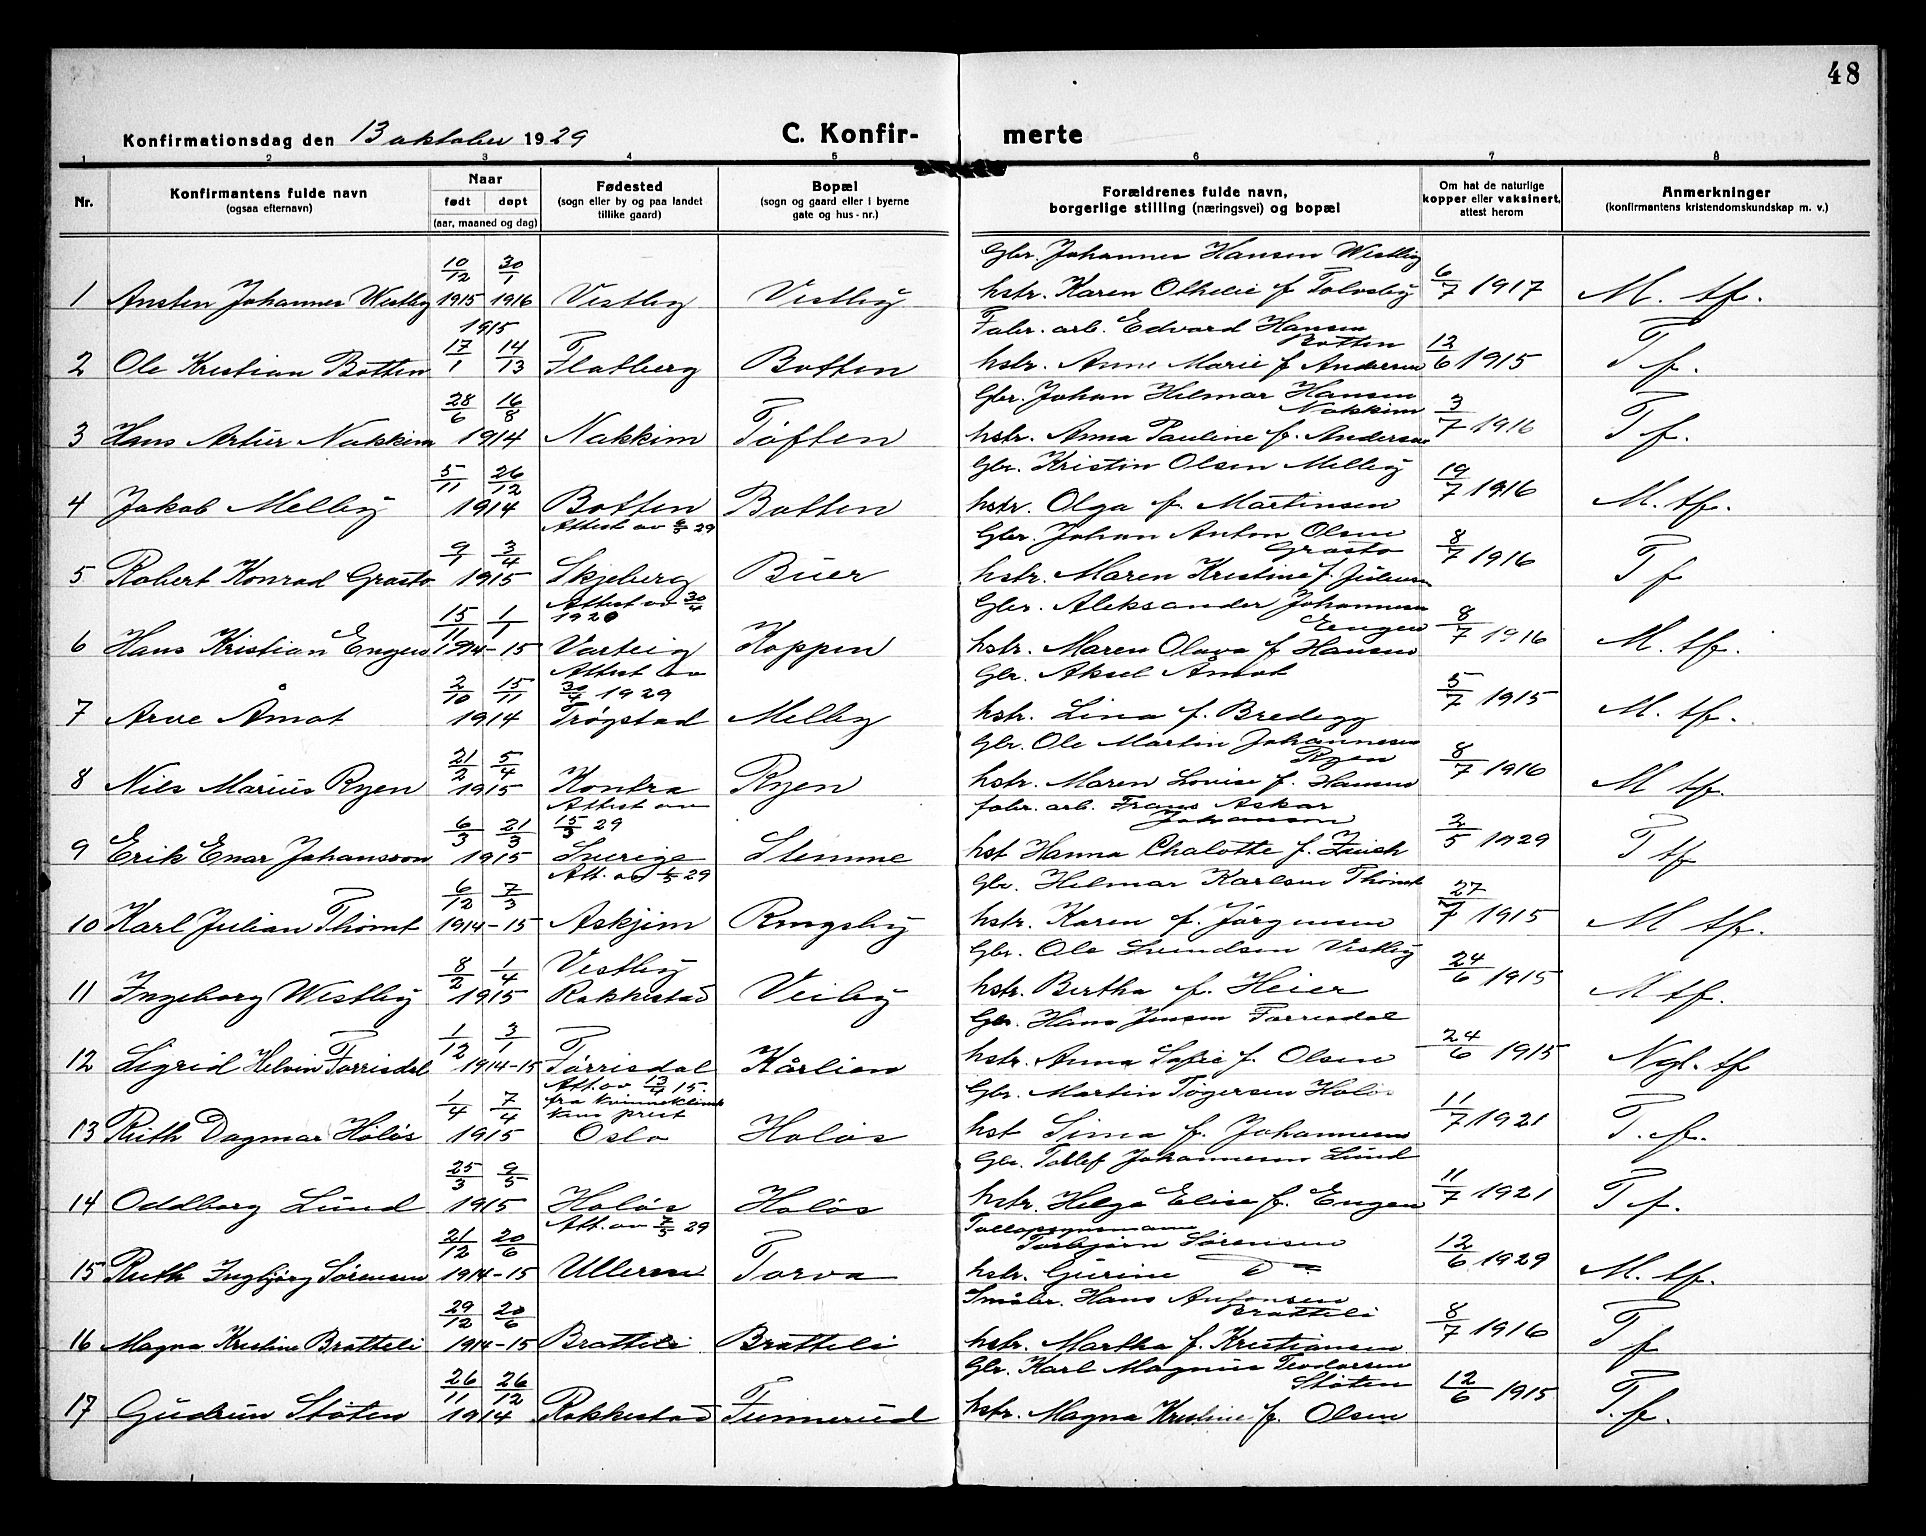 48
Konfirmationsdag den 13 oktober 1929
C. Konfir- merte
1 2 3 4 5 6 7 8
Nr.
Konfirmantens fulde navn
(ogsaa efternavn)
Naar
født døpt
(aar, maaned og dag)
Fødested
(sogn eller by og paa landet
tillike gaard)
Bopæl
(sogn og gaard eller i byerne
gate og hus-nr.)
Forældrenes fulde navn,
borgerlige stilling (næringsvei) og bopæl
Om hat de naturlige
kopper eller vaksinert,
attest herom
Anmerkninger
(konfirmantens kristendomskundskap m. v.)
10/12 30/1 Gbr. Johannes Hansen Westby
1 Ansten Johannes Westby 1915 1916 Vestby Vestby hstr. Karen Othelie f. Tolvsby 6/7 1917 M. tf.
1915 Fabr. arb. Edvard Hansen
17/1 14/13 Botten
2 Ole Kristian Botten Flatberg Botten hstr. Anne Marie f. Andersen 12/6 1915 T f.
28/6 16/8 Gbr. Johan Helmar Hansen
Nakkim
3 Hans Artur Nakkim 1914 Nakkim Tøften hstr. Anna Pauline f. Andersen 3/7 1916 T f.
5/11 26/12 Gbr. Kristin Olsen Melby
4 Jakob Melby 1914 Botten Botten hstr. Olga f. Martinsen 19/7 1916 M. tf.
Attest av 6/5 29 Gbr. Johan Anton Olsen
9/1 3/4 Grasto
5 Robert Konrad Grasto 1915 Skjeberg Buer hstr. Maren Kristine f. Juliusen 8/7 1916 T f
Attest av 30/4 Gbr. Aleksander Johannesen
15/11 1/1 1920 Engen
6 Hans Kristian Engen 1914-15 Varteig Koppen hstr. Maren Olava f. Hansen 8/7 1916 M. tf.
Attest av Gbr. Aksel Åmot
2/10 15/11 30/4 1929
7 Arve Åmot 1914 Trøgstad Melby hstr. Lina f. Bredegg 5/7 1915 M. tf.
Gbr. Ole Martin Johannesen
21/2 5/4 Ryen
8 Nils Marius Ryen 1915 Kontra Ryen hstr. Maren Lovise f. Hansen 8/7 1916 M tf.
Attest av fabr. arb. Frans Askar
6/3 21/3 15/3 29 Johanson
9 Erik Enar Johansson 1915 Sverige Stemme hst Hanna Chalotte f. 2/5 1929 T tf
Att. av 6/5 29 Gbr. Helmar Karlsen Thømt
6/12 7/3
10 Karl Julian Thømt 1914-15 Askjim Ringsby hstr. Karen f. Jørgensen 27/7 1915 M tf.
8/2 1/4 Vestby Gbr. Ole Svendsen Vestby
11 Ingeborg Westby 1915 Rakkestad Veiby hstr. Bertha f. Heier 24/6 1915 M tf.
1/12 3/1 Gbr. Hans Jensen Torrisdal
12 Sigrid Helvin Torrisdal 1914-15 Tørrisdal Kårlien hstr. Anna Sofie f. Olsen 24/6 1915 Ngl. tf
Att. av 13/4 15. Gbr. Martin Tøgersen Holøs
1/4 7/4 fra kvinneklinik
kens prest
13 Ruth Dagmar Holøs 1915 Oslo Holøs hst Sina f. Johannesen 11/7 1921 T. f.
25/3 9/5 Gbr. Tollef Johannesen Lund
14 Oddborg Lund 1915 Holøs Holøs hstr. Helga Elise f. Engen 11/7 1921 T f.
Att. av 7/5 29 Tollopsynsmann
21/12 20/6 Torbjørn Sørensen
15 Ruth Ingbjørg Sørensen 1914-15 Ullern Torva hstr. Gurine Do 12/6 1929 M. tf.
29/12 20/6 Småbr. Hans Antonsen
Bratteli
16 Magna Kristine Bratteli 1914-15 Bratteli Bratteli hstr. Martha f. Kristiansen 8/7 1916 T f
26/11 26/12 Gbr. Karl Magnus Teodorsen
Støten
17 Gudrun Støten 1914 Rakkestad Tunnerud hstr. Magna Kristine f. Olsen 12/6 1915 T. f.